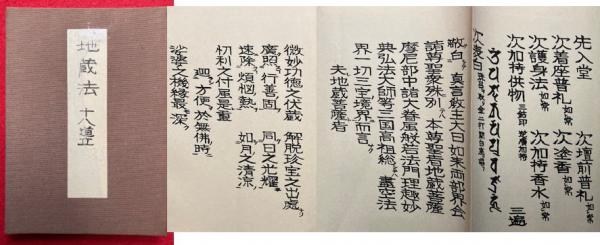 地蔵法 十八道立
先入堂 次壇前普礼 如常
次着座普礼 如常 次塗香 如常
次護身法 如常 次加持香水 如常
次加持供物 三鈷印 三遍
次表白
敬白 真言教主大日如来両部界会
諸尊聖衆殊別 本尊聖者地蔵菩薩
摩尼部中諸大眷属般若法門理趣妙
典弘法大師等三国高祖総 盡空法
界一切三宝境界而言
夫地蔵菩薩者
微妙功徳之伏蔵 解脱珍宝之出處
廣照行善固 同日之光耀
速除煩悩熱 如月之清涼
忉利之付属是重
廻方便於無佛時
娑婆之機縁最深